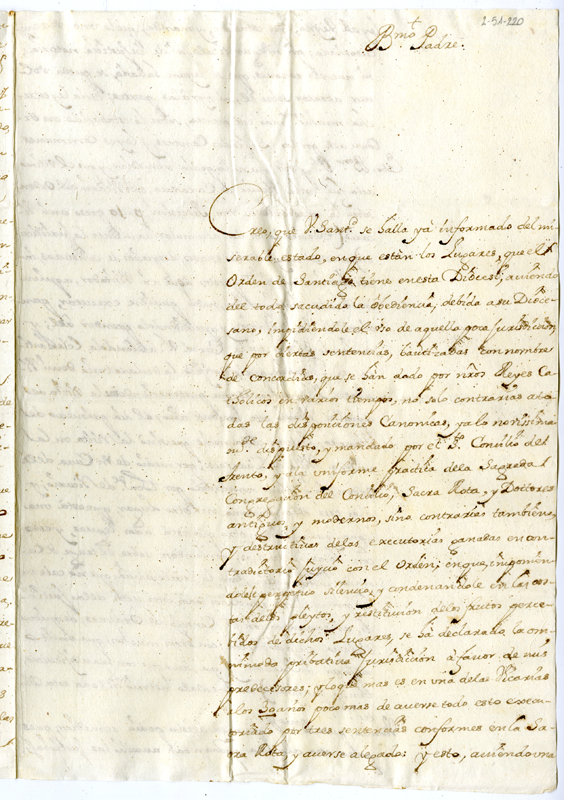 2-51-220
Bmo. Padre.
Creo, que V. Santd. se halla ya informado del mi-
serable estado, en que estàn los Lugares, que el
Orden de Santiago tiene en esta Diocesi, aviendo
del todo sacudido la obediencia, debida a su Dioce-
sano, impidiendole el uso de aquella poca Jurisdiccion,
que por ciertas sentencias, bautizadas con nombre
de concordias, que se hàn dado por nros. Reyes Ca-
tholicos en varios tiempos, no solo contrarias a to-
das las disposiciones Canonicas, ya lo novissima
mte. dispuesto, y mandado por el S. Concilio de
Trento, y a la uniforme practica de la Sagrada
Congregacion del Concilio, Sacra Rota, y Doctores
antiguos, y modernos, sino contrarias tambien,
y destructivas de las executorias ganadas en con-
tradictorio juycio con el Orden; en que, imponien-
dole perpetuo silencio, y condenandole en las cos-
tas de los pleytos, y restitucion de los frutos perce-
bidos de dichos Lugares, se hà declarado la om-
nimoda privativa Jurisdiccion à favor de mis
predecessores; y lo que mas es en una de las Vicarias
a los 30 años poco mas de averse todo esto execu-
toriado por tres sentencias conformes en la Sa-
cra Rota, y averse alegado: y esto, aviendo una